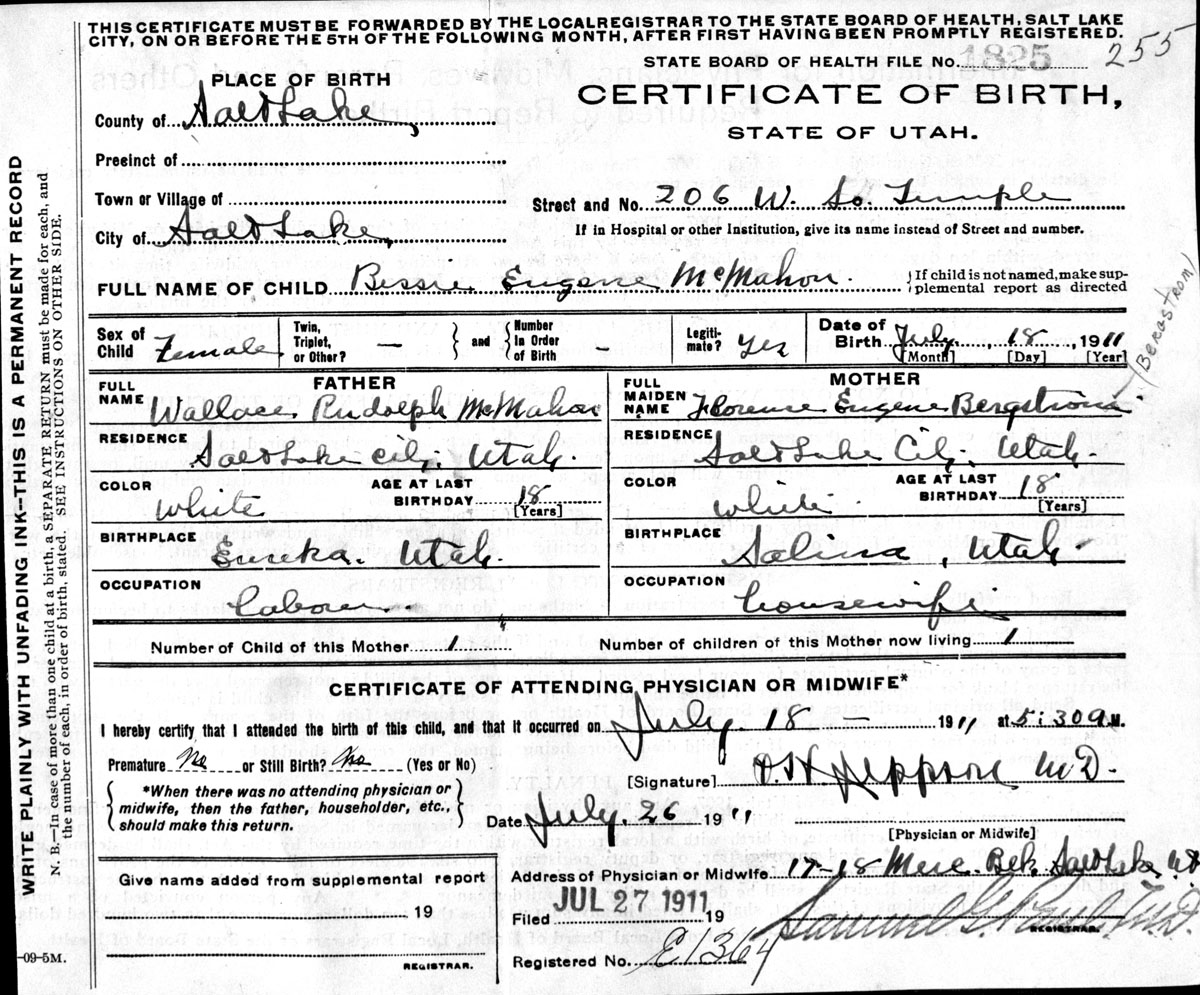 THIS CERTIFICATE MUST BE FORWARDED BY THE LOCAL REGISTRAR TO THE STATE BOARD OF HEALTH, SALT LAKE
CITY, ON OR BEFORE THE 5TH OF THE FOLLOWING MONTH, AFTER FIRST HAVING BEEN PROMPTLY REGISTERED.
STATE BOARD OF HEALTH FILE No. 1825 255
PLACE OF BIRTH
CERTIFICATE OF BIRTH,
STATE OF UTAH.
County of Salt Lake,
Precinct of
Town or Village of
Street and No. 206 W. So. Temple
City of Salt Lake,
If in Hospital or other Institution, give its name instead of Street and number.
FULL NAME OF CHILD Bessie Eugene McMahon. {If child is not named, make sup-
plemental report as directed
Sex of Child Female
Twin, Triplet, or Other? —
and Number In Order of Birth —
Legiti- mate? yes
Date of Birth July, 18, 1911
[Month] [Day] [Year]
(BERGSTROM)
FATHER
FULL NAME Wallace Rudolph McMahon
RESIDENCE Salt Lake City. Utah.
COLOR white
AGE AT LAST BIRTHDAY 18
[Years]
BIRTHPLACE Eureka. Utah.
OCCUPATION Labore
MOTHER
FULL MAIDEN NAME Florence Eugene Bergstrom
RESIDENCE Salt Lake City. Utah.
COLOR white
AGE AT LAST BIRTHDAY 18
[Years]
BIRTHPLACE Salina, Utah.
OCCUPATION housewife
Number of Child of this Mother 1 Number of children of this Mother now living 1
CERTIFICATE OF ATTENDING PHYSICIAN OR MIDWIFE*
I hereby certify that I attended the birth of this child, and that it occurred on July. 18 — 1911 at 5:30 a M.
Premature No or Still Birth? No (Yes or No)
[Signature] Jeppson MD.
{*When there was no attending physician or
midwife, then the father, householder, etc.,
should make this return.}
Date July. 26 19 11
[Physician or Midwife]
Give name added from supplemental report
Address of Physician or Midwife 17-18 Merc. Blk. Salt Lake Ut
19
Filed JUL 27 1911 19
Samuel G. M.D.
REGISTRAR.
REGISTRAR.
Registered No. E1364
-09-5M.
WRITE PLAINLY WITH UNFADING INK—THIS IS A PERMANENT RECORD
N. B.—In case of more than one child at a birth, a SEPARATE RETURN must be made for each, and
the number of each, in order of birth, stated. SEE INSTRUCTIONS ON OTHER SIDE.